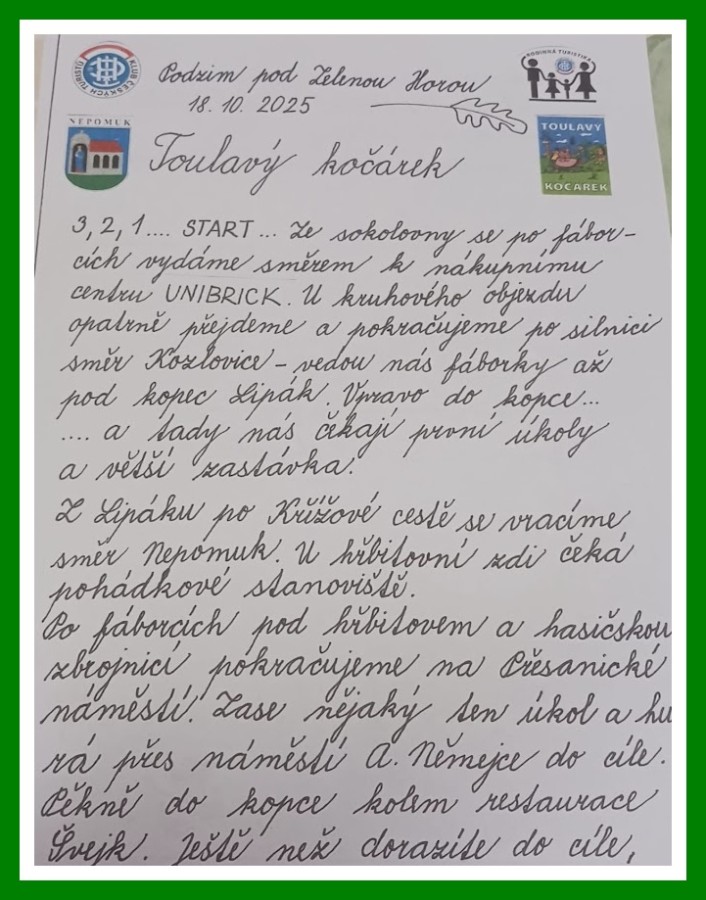 KLUB ČESKÝCH TURISTŮ
RODINNÁ TURISTIKA
Podzim pod Zelenou Horou
18. 10. 2025
NEPOMUK
Toulavý kočárek
TOULAVÝ
KOČÁREK
3, 2, 1.... START... Ze sokolovny se po fábor-
cích vydáme směrem k nákupnímu
centru UNIBRICK. U kruhového objezdu
opatrně přejdeme a pokračujeme po silnici
směr Kozlovice - vedou nás fáborky až
pod kopec Lipák. Vpravo do kopce...
.... a tady nás čekají první úkoly
a větší zastávka.
Z Lipáku po Křížové cestě se vracíme
směr Nepomuk. U hřbitovní zdi čeká
pohádkové stanoviště.
Po fáborcích pod hřbitovem a hasičskou
zbrojnicí pokračujeme na Přesanické
náměstí. Zase nějaký ten úkol a hu
rá přes náměstí A. Němejce do cíle.
Pěkně do kopce kolem restaurace
Švejk. Ještě než dorazíte do cíle,